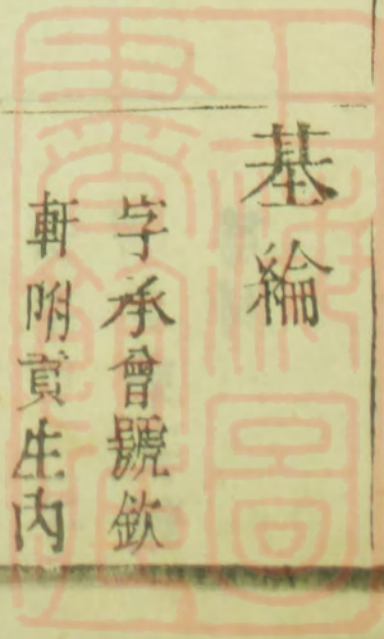 基綸
字承曾號欽
軒附貢生內